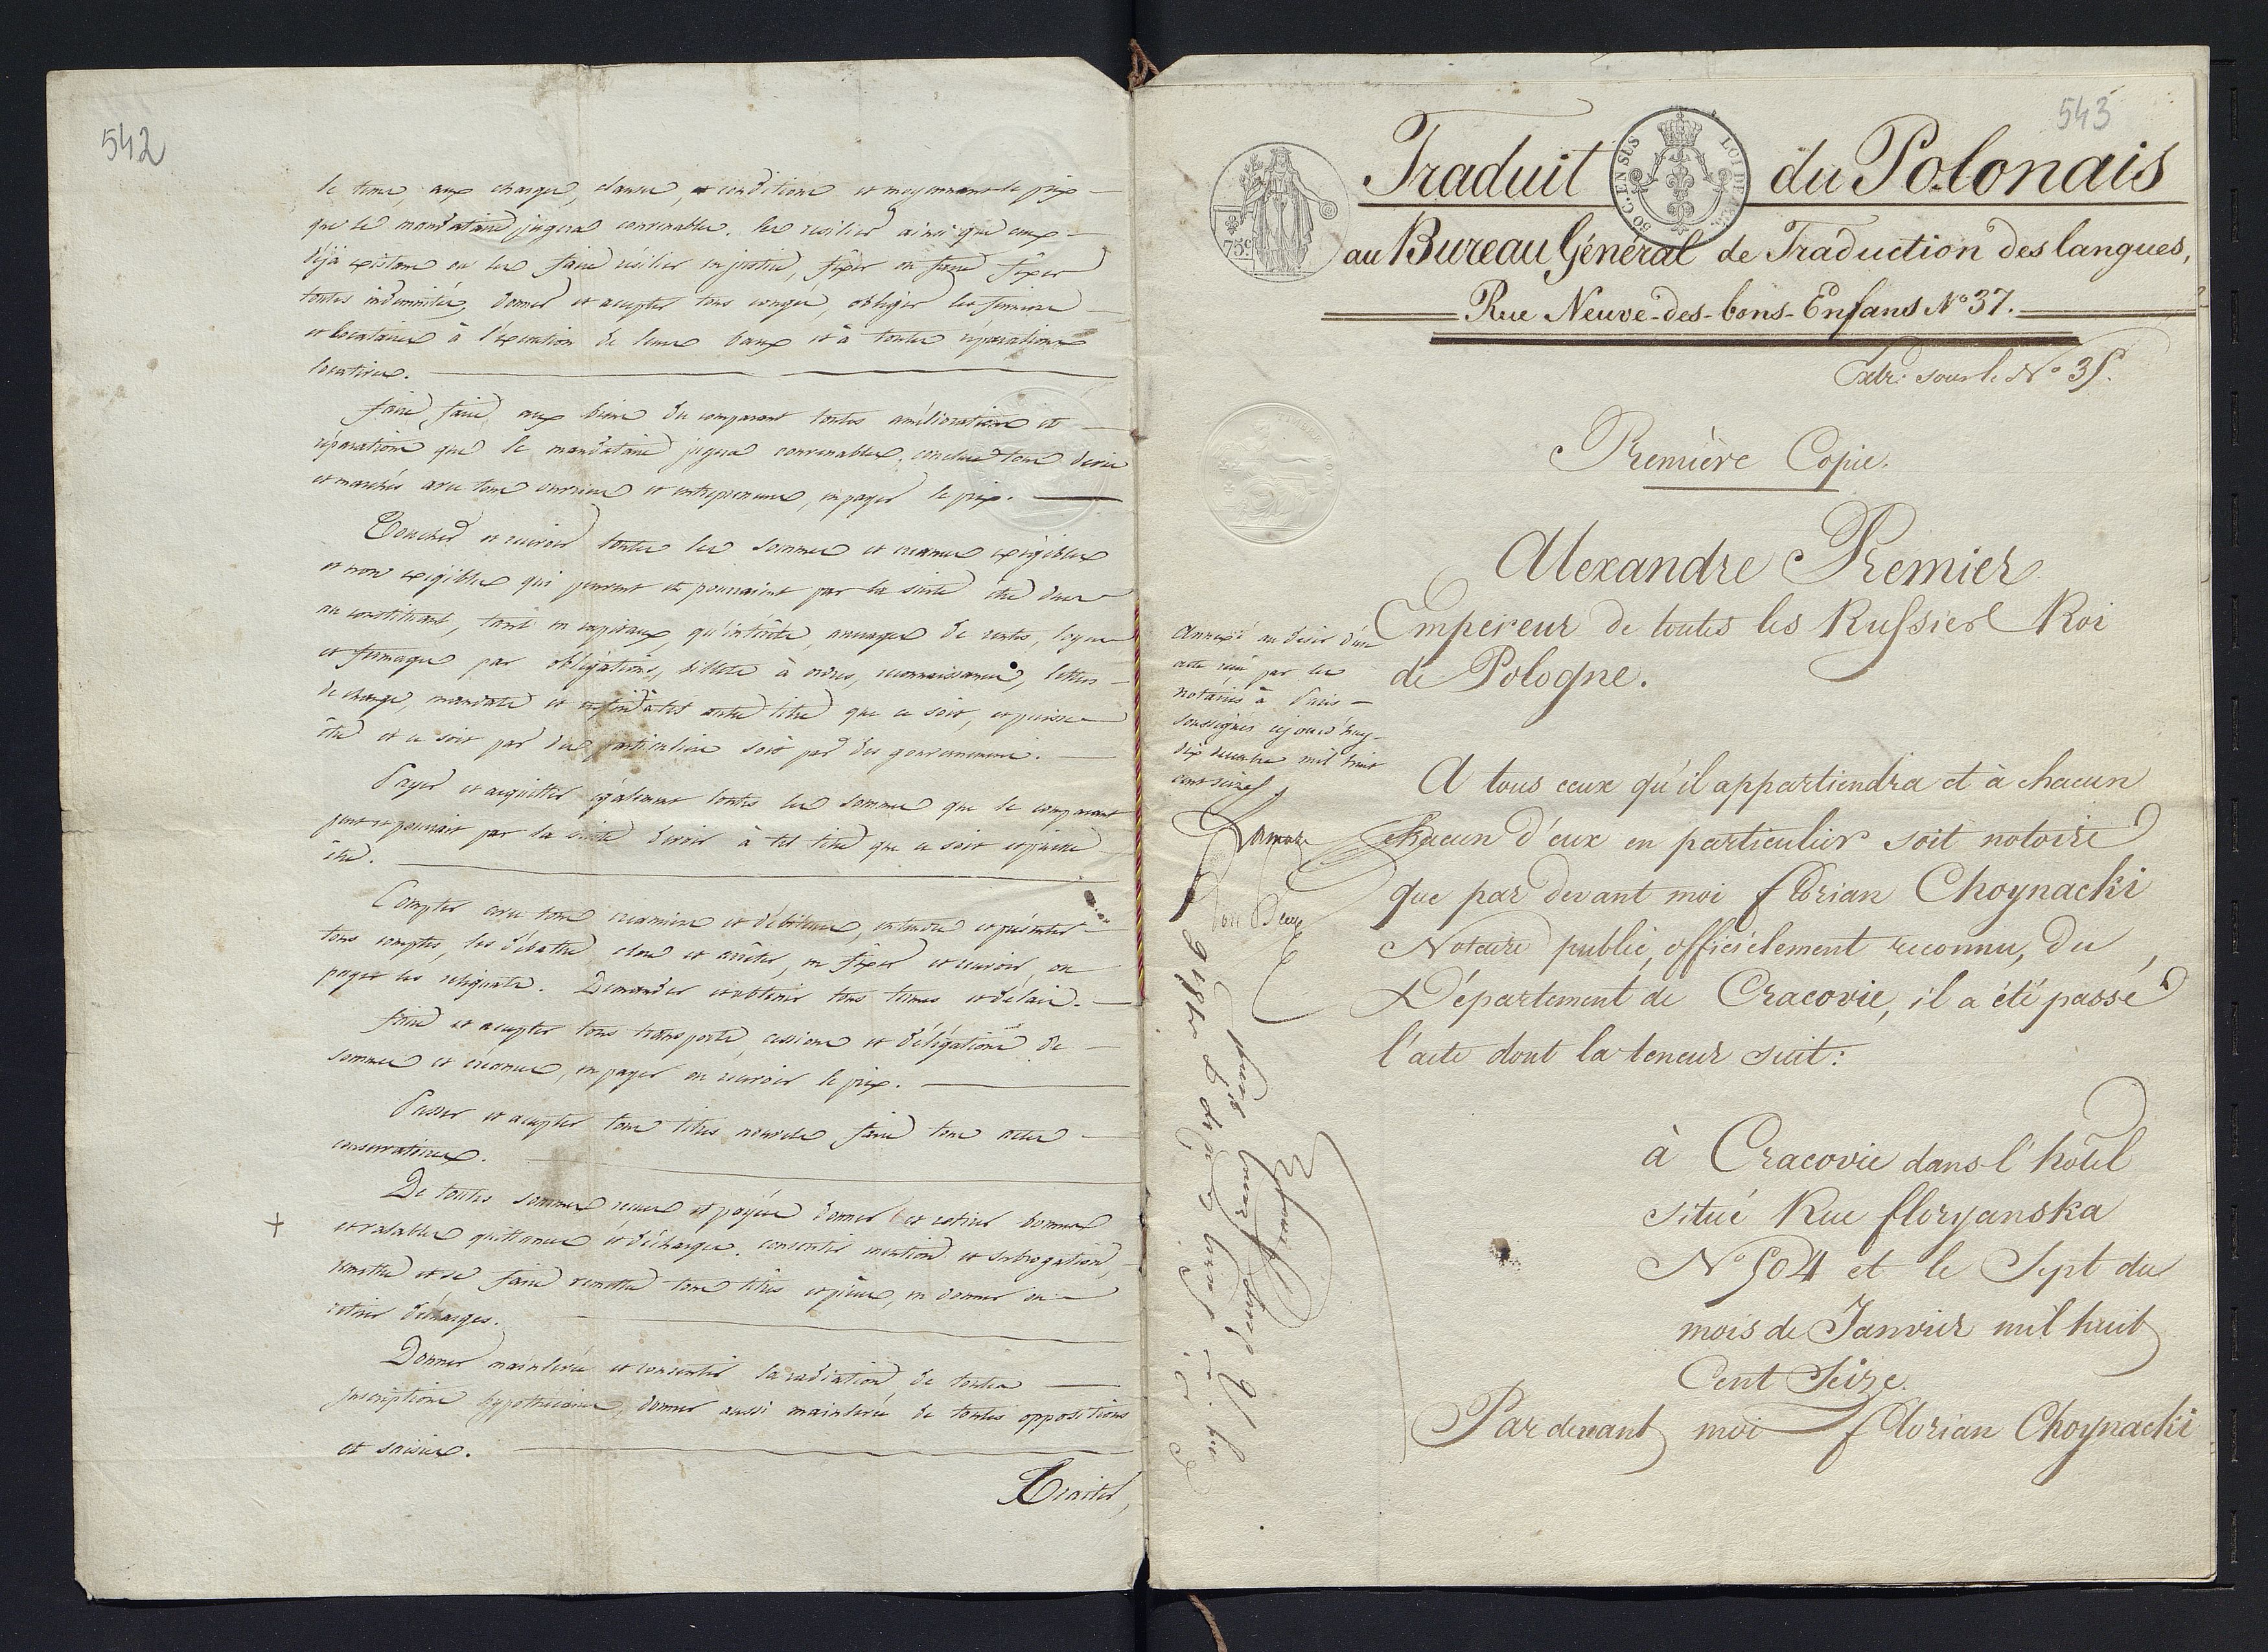 542
le tems, aux charges, clauses, et conditions et moyennant le prix
que le mandataire jugera convenables. les resilier ainsi que ceux
déjà existans ou les faire résilier en justice, fixer ou faire fixer
toutes indemnités, donner et accepter tous congés, obliger les fermiers
et locataires à l'exécution de leurs baux et à toutes réparations
locatives.
faire faire aux biens du comparant toutes améliorations et
réparations que le mandataire jugera convenables, conclure tous devis
et marchés avec tous ouvriers et entrepreneurs, en payer le prix.
Toucher et recevoir toutes les sommes et créances exigibles
et non exigibles qui peuvent et pourraient par la suite être dues
au constituant, tant en capitaux, qu'intérêts, arrérages de rentes, loyers
et fermages par obligations, billets à ordres, reconnaissances, lettres
de change, mandats et à tel autre titre que ce soit, et puisse
être et ce soit par des particuliers soit par des gouvernemens.
Payer et acquitter également toutes les sommes que le comparant
peut et pourrait par la suite devoir à tel titre que ce soit et puisse
être.
Compter avec tous créanciers et débiteurs, entendre et présenter
tous comptes, les débattre, clore et arrêter, en fixer et recevoir, ou
payer les reliquats. Demander et obtenir tous termes et délais.
faire et accepter tous transports, cessions et délégations de
sommes et créances, en payer ou recevoir le prix.
Passer et accepter tous titres nouvels faire tous actes
conservatoires.
+
De toutes sommes reçues et payées donner et retirer bonnes
et valables quittances et décharges. consentir mention et subrogation,
remettre et se faire remettre tous titres et pièces, en donner ou
retirer décharges.
Donner mainlevée et consentir la radiation de toutes
inscriptions hypothécaires, donner aussi mainlevée de toutes oppositions
et saisies.
Traiter,
543
Traduit du Polonais
75c.
50 C. EN SUS LOI DE 1816.
au Bureau Général de Traduction des langues,
Rue Neuve-des-bons-Enfans No 37.
sous le No 35.
Première Copie.
Alexandre Premier
Empereur de toutes les Russies Roi
de Pologne.
Annexé au désir d'un
acte reçu par les
notaires à Paris
soussignés cejourd'huy
dix mil huit
cent seize
A tous ceux qu'il appartiendra et à chacun
chacun d'eux en particulier soit notoire
que par devant moi florian Choynacki
Notaire public, officiélement reconnu, du
Département de Cracovie, il a été passé
l'acte dont la teneur suit:
à Cracovie dans l'hotel
situé Rue floryanska
No 504 et le Sept du
mois de Janvier mil huit
Cent Seize.
Pardevant moi florian Choynacki